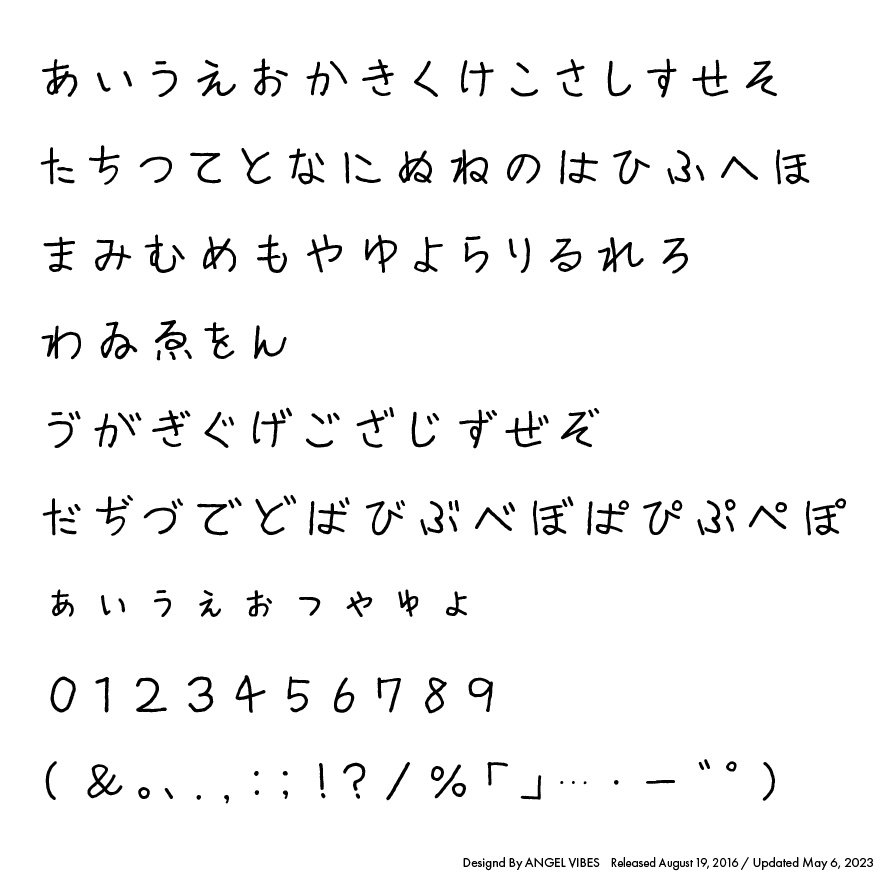 あいうえおかきくけこさしすせそ
たちつてとなにぬねのはひふへほ
まみむめもやゆよらりるれろ
わゐゑをん
ゔがぎぐげござじずぜぞ
だぢづでどばびぶべぼぱぴぷぺぽ
ぁぃぅぇぉっゃゅょ
0123456789
(&。、.,:;!?/%「」…・ー゛゜)
Designd By ANGEL VIBES Released August 19, 2016 / Updated May 6, 2023